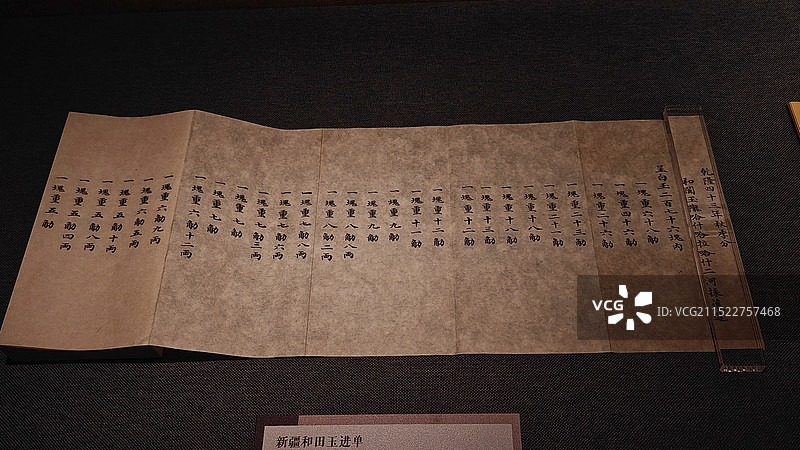 乾隆四十三年秋季分
和闐玉隴哈什哈拉哈什二河採
呈白玉二百七十六塊內
一塊重六十八觔
一塊重四十六觔
一塊重二十六觔
一塊重二十三觔
一塊重二十一觔
一塊重十八觔
一塊重十八觔
一塊重十三觔
一塊重十二觔
一塊重十二觔
一塊重十一觔
一塊重九觔
一塊重九觔
一塊重八觔八兩
一塊重八觔二兩
一塊重七觔八兩
一塊重七觔六兩
一塊重七觔二兩
一塊重七觔
一塊重七觔
一塊重六觔十二兩
一塊重六觔九兩
一塊重六觔五兩
一塊重五觔十兩
一塊重五觔八兩
一塊重五觔四兩
一塊重五觔
新疆和田玉进单
VCG 视觉中国
ID: VCG211522757468